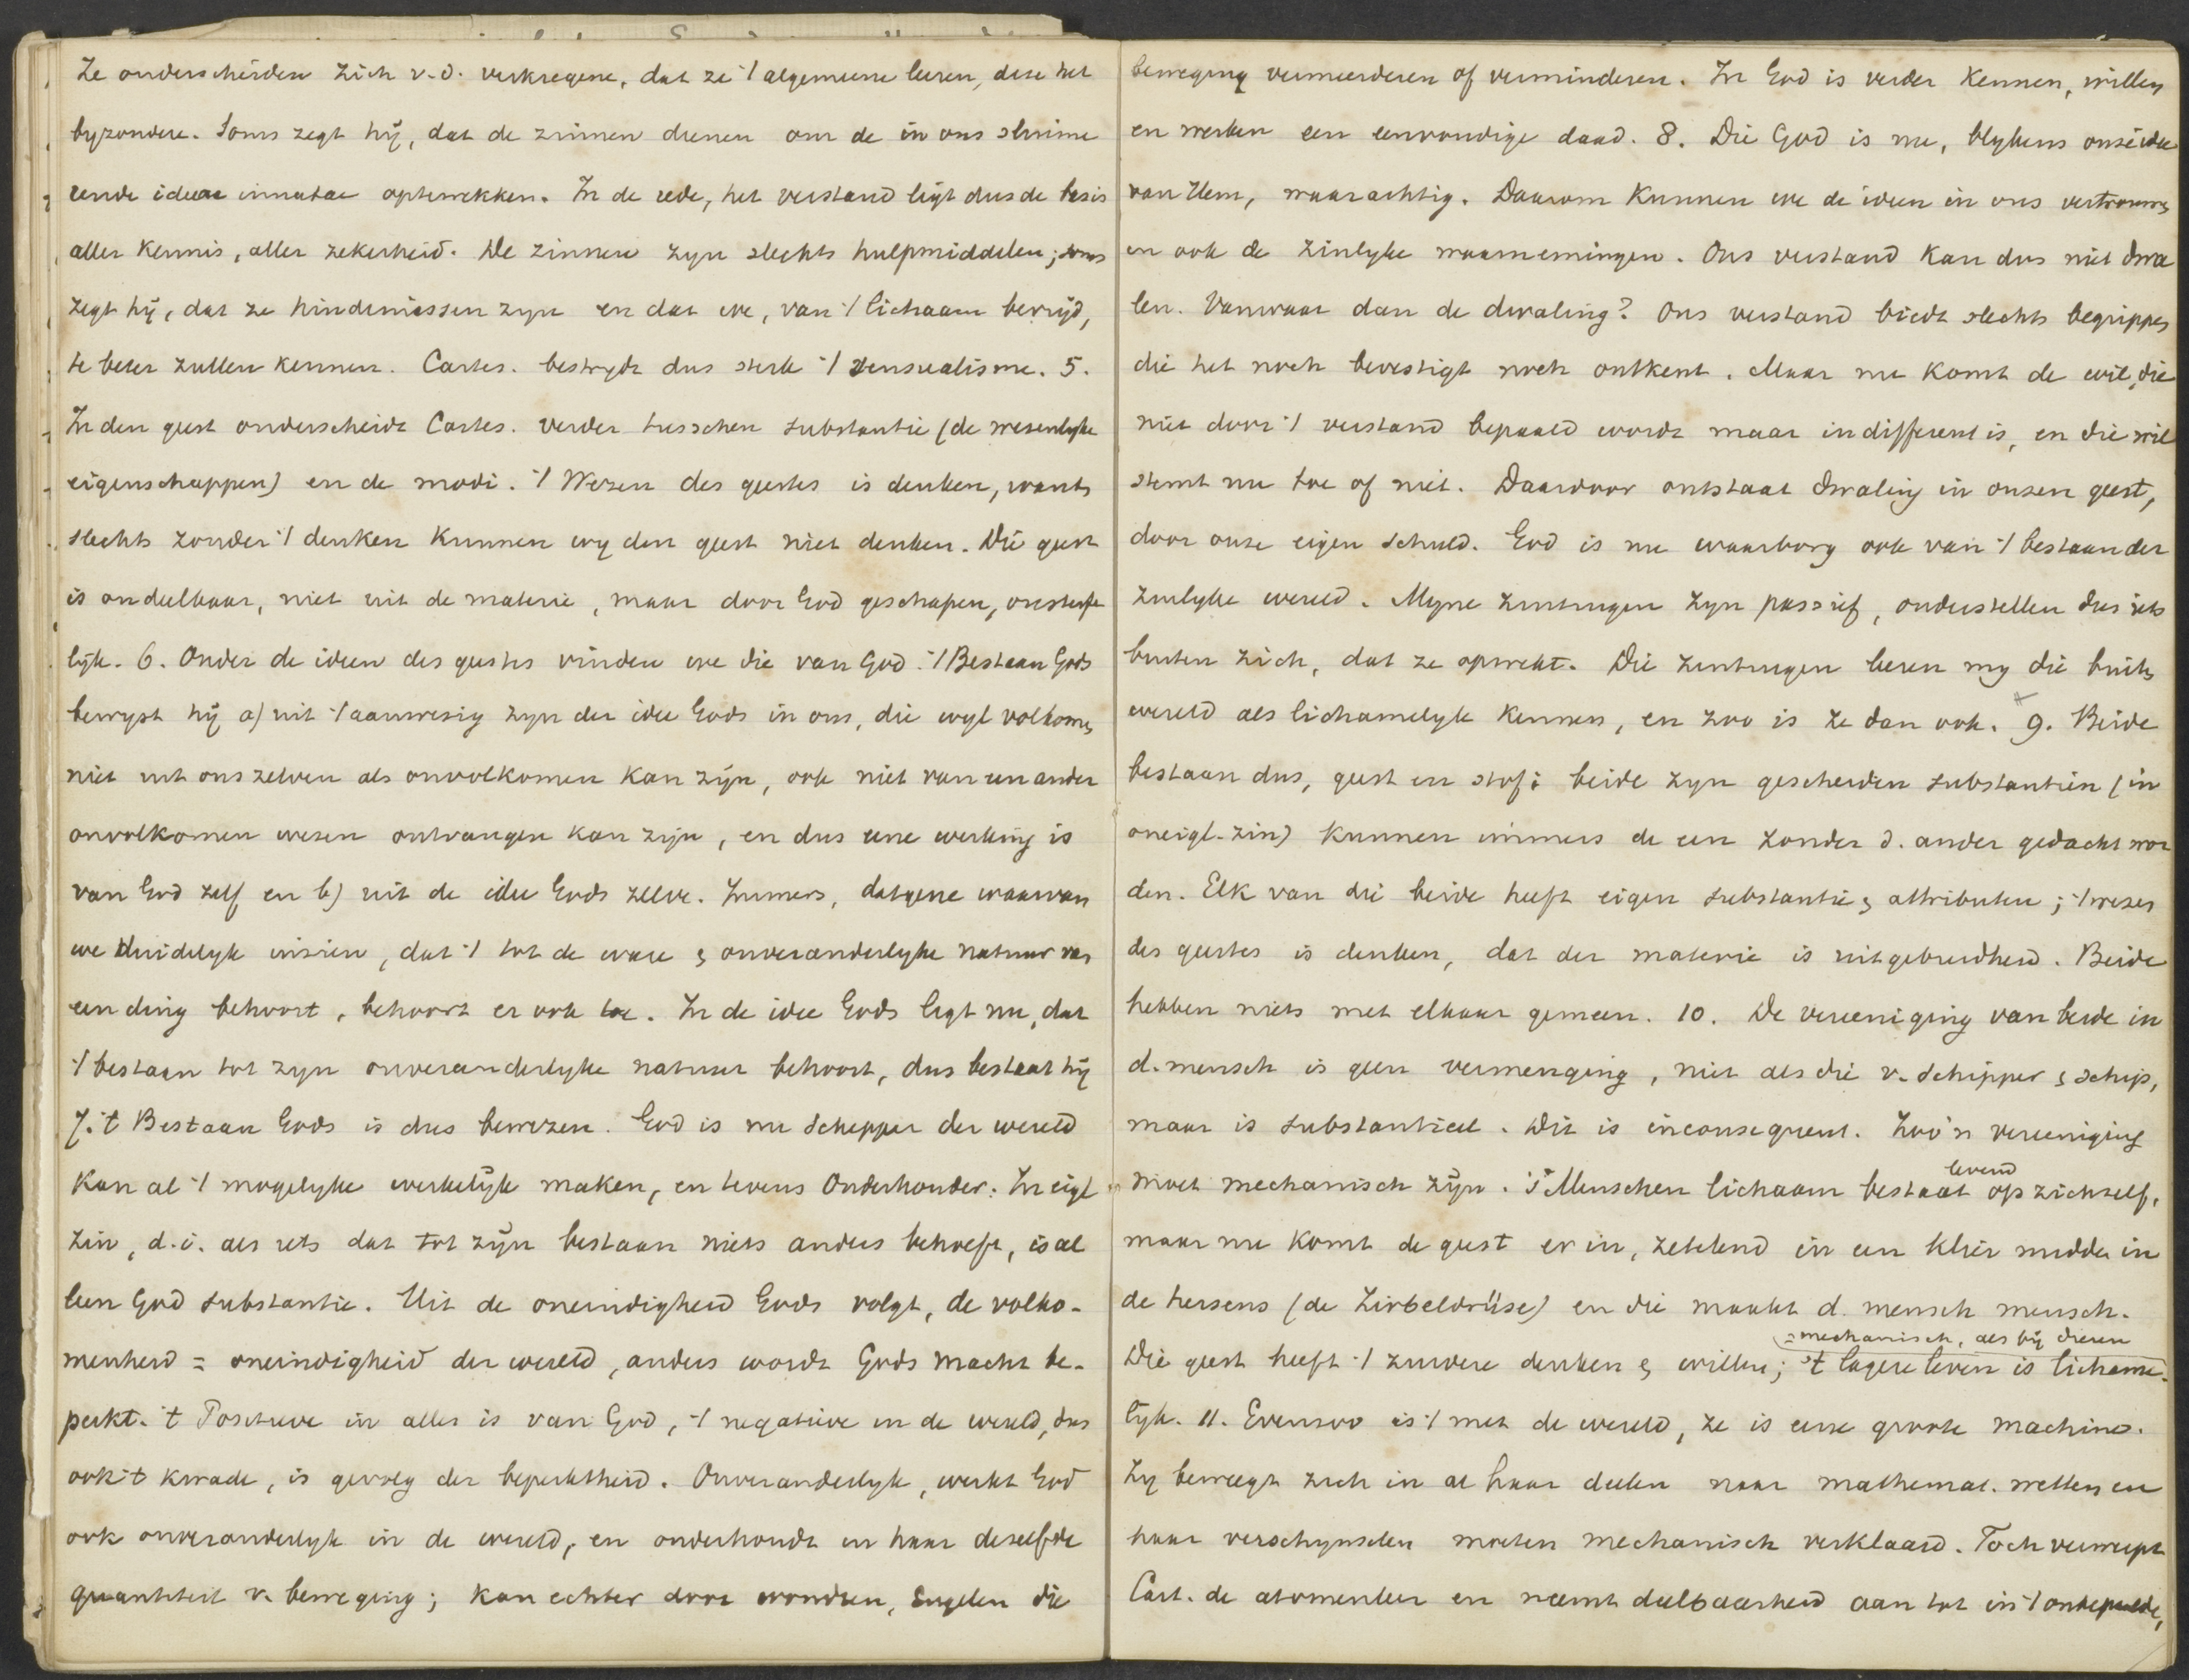 Ze onderscheiden zich v.d. verkregene, dat ze 't algemeene leeren, deze het
byzondere. Soms zegt hij, dat de zinnen dienen om de in ons sluime
rende ideae innatae optewekken. In de rede, het verstand ligt dus de basis
aller kennis, aller zekerheid. De zinnen zyn slechts hulpmiddelen; soms
zegt hij, dat ze hindernissen zyn en dat we, van 't lichaam bevrijd,
te beter zullen kennen. Cartes. bestrydt dus sterk 't sensualisme. 5.
In den geest onderscheidt Cartes. verder tusschen substantie (de wezenlyke
eigenschappen) en de modi. 't Wezen des geestes is denken, want
slechts zonder 't denken kunnen wy den geest niet denken. Die geest
is ondeelbaar, niet uit de materie, maar door God geschapen, onsterfe
lijk. 6. Onder de ideen des geestes vinden we die van God. 't Bestaan Gods
bewyst hij a) uit 't aanwezig zyn der idee Gods in ons, die wyl volkomen
niet uit ons zelven als onvolkomen kan zijn, ook niet van een ander
onvolkomen wezen ontvangen kan zijn, en dus eene werking is
van God zelf en b) uit de idee Gods zelve. Immers, datgene waarvan
we duidelyk inzien, dat 't tot de ware & onveranderlyke natuur van
een ding behoort, behoort er ook toe. In de idee Gods ligt nu, dat
't bestaan tot zyn onveranderlyke natuur behoort, dus bestaat hij
7. 't Bestaan Gods is dus bewezen. God is nu Schepper der wereld
Kan al 't mogelyke werkelijk maken, en tevens Onderhouder. In eigl
zin, d.i. als iets dat tot zijn bestaan niets anders behoeft, is al
leen God substantie. Uit de oneindigheid Gods volgt, de volko-
menheid = oneindigheid der wereld, anders wordt Gods macht be-
perkt. 't Positieve in alles is van God, 't negatieve in de wereld, dus
ook 't kwade, is gevolg der beperktheid. Onveranderlyk, werkt God
ook onveranderlyk in de wereld, en onderhoudt in haar dezelfde
quantiteit v. beweging; kan echter door wonderen, Engelen die
beweging vermeerderen of verminderen. In God is verder kennen, willen
en werken een eenvoudige daad. 8. Die God is nu, blykens onze idee
van Hem, waarachtig. Daarom kunnen we de ideen in ons vertrouwen
en ook de zinlyke waarnemingen. Ons verstand kan dus niet dwa
len. Vanwaar dan de dwaling? Ons verstand biedt slechts begrippen
die het noch bevestigt noch ontkent. Maar nu komt de wil, die
niet door 't verstand bepaald wordt maar indifferent is, en die wil
stemt nu toe of niet. Daardoor ontstaat dwaling in onzen geest,
door onze eigen schuld. God is nu waarborg ook van 't bestaan der
zinlyke wereld. Myne zintuigen zyn passief, onderstellen dus iets
buiten zich, dat ze opwekt. Die zintuigen leeren my die buiten
wereld als lichamelyk kennen, en zoo is ze dan ook. 9. Beide
bestaan dus, geest en stof; beide zyn gescheiden substantien (in
oneigl. zin) kunnen immers de een zonder d. ander gedacht wor
den. Elk van die beide heeft eigen substantie & attributen; 't wezen
des geestes is denken, dat der materie is uitgebreidheid. Beide
hebben niets met elkaar gemeen. 10. De vereeniging van beide in
d. mensch is geen vermenging, niet als die v. schipper & schip,
maar is substantieel. Dit is inconsequent. Zoo'n vereeniging
moet mechanisch zijn. 's Menschen lichaam bestaat levend op zichzelf,
maar nu komt de geest er in, zetelend in een klier midden in
de hersens (de Zirbeldrüse) en die maakt d. mensch mensch.
(= mechanisch, als bij dieren
Die geest heeft 't zuivere denken & willen; 't lagere leven is lichame-
lijk. 11. Evenzoo is 't met de wereld, ze is eene groote machine.
Zy beweegt zich in al haar deelen naar mathemat. wetten en
haar verschynselen moeten mechanisch verklaard. Toch verwerpt
Cart. de atomenleer en neemt deelbaarheid aan tot in 't onbepaalde,